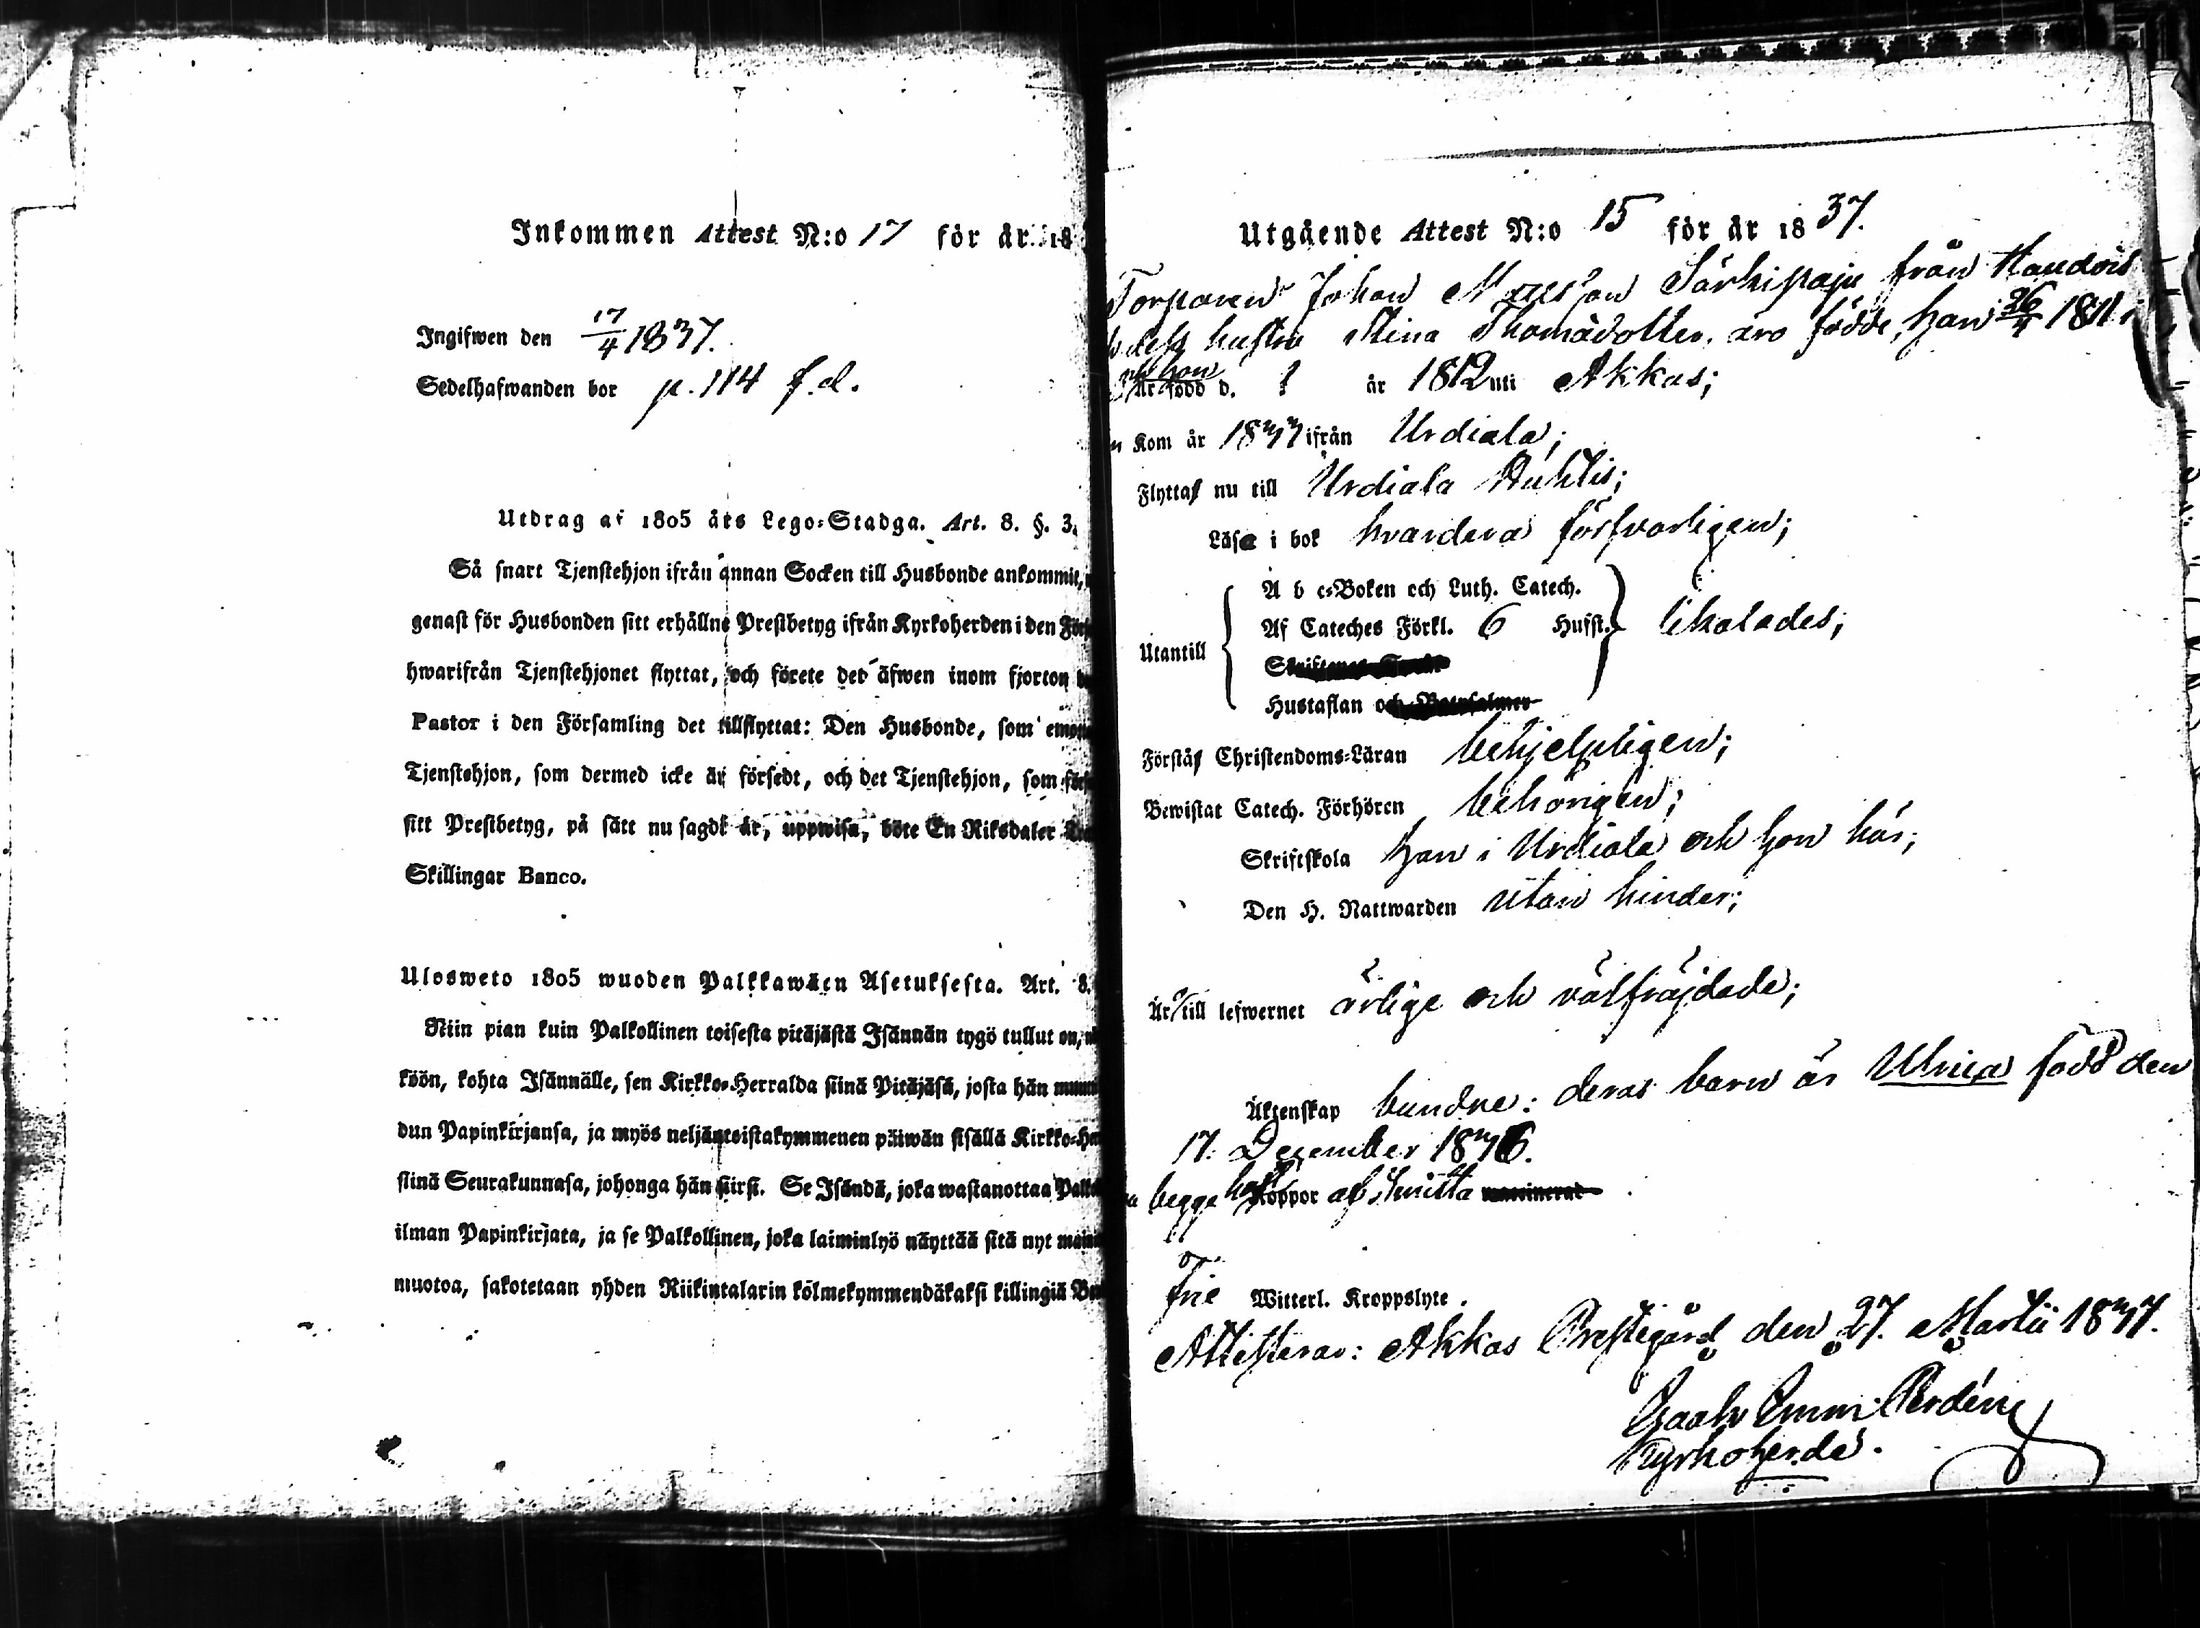 Inkommen Attest N:o 17 för år 18
Ingifwen den 17/4 1837.
Sedelhafwanden bor p. 114 f.d.
Utdrag af 1805 års Lego-Stadga. Art. 8. §. 3.
Så snart Tjenstehjon ifrån annan Socken till Husbonde ankommit,
genast för Husbonden sitt erhållne Prestbetyg ifrån Kyrkoherden i den
hwarifrån Tjenstehjonet flyttat, och förete det äfwen inom fjorton
Pastor i den Församling det tillflyttat: Den Husbonde, som
Tjenstehjon, som dermed icke är försedt, och det Tjenstehjon, som
sitt Prestbetyg, på sätt nu sagdt är, uppwisa, böte En Riksdaler
Skillingar Banco.
Ulosweto 1805 wuoden Palkkawäen Asetuksesta. Art. 8.
Niin pian kuin Palkollinen toisesta pitäjästä Isännän tygö tullut on,
köön, kohta Isännälle, sen Kirkko-Herralda siinä Pitäjäsä, josta hän
dun Papinkirjansa, ja myös neljäntoistakymmenen päiwän sisällä Kirkko-
siinä Seurakunnasa, johonga hän siirsi. Se Isändä, joka wastanottaa
ilman Papinkirjata, ja se Palkollinen, joka laiminlyö näyttää sitä nyt
muotoa, sakotetaan yhden Riikintalarin kölmekymmendäkaksi killingiä
Utgående Attest N:o 15 för år 1837.
Torparen Johan Särkipaju från
hustru Stina Thomädotter, äro födde, han 26/4 1811 i
hon
Är född d. år 1812 uti Akkas;
Kom år 1837 ifrån Urdiala;
Flyttaf nu till Urdiala Huhtis;
Läsa i bok hvardera försvarligen;
Utantill
A b c-Boken och Luth. Catech.
Af Cateches Förkl. 6 Husst. likalades;
Hustaflan
Förstå Christendoms-Läran behjelpligen;
Bewistat Catech. Förhören behörigen;
Skriftskola han i Urdiala och hon här;
Den H. Nattwarden utan hinder;
Är till lefwernet ärlige och välfräjdade;
Äktenskap bundne: deras barn är Ulrica född den
17. December 1836.
begge haft Koppor af smitta
Frie Witterl. Kroppslyte.
Attesterar: Akkas Prestegård den 27. Martii 1837.
Isaak Emm. Perdén
Kyrkoherde.